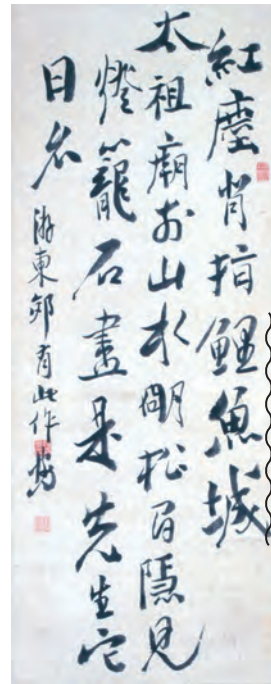 紅塵背指鯉魚城
太祖廟前山水朙松間隱見
燈籠石盡是先生它
日名 游東郊有此作